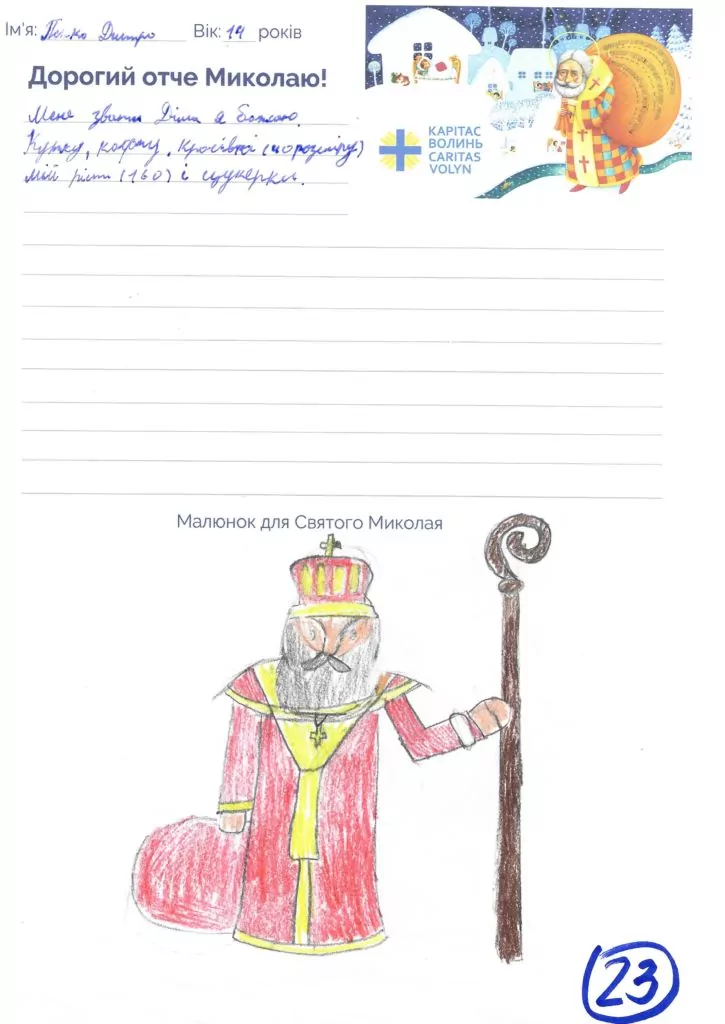 Ім'я: Дмитро Вік: 14 років
Дорогий отче Миколаю!
Мене звати Діма я бажаю.
Куртку, кофту, кросівкі (40 розміру)
мій ріст (160) і цукерки.
КАРІТАС
ВОЛИНЬ
CARITAS
VOLYN
Малюнок для Святого Миколая
23